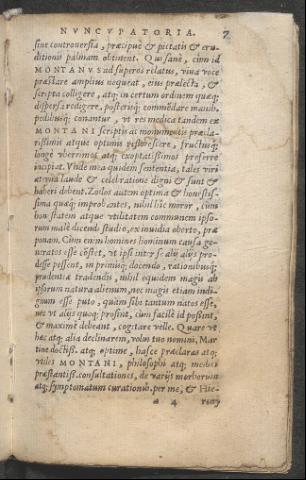 NVNCVPATORIA. 7
sine controuersia, præcipuè & pietatis & eru-
ditionis palmam obtinent. Qui sanè, cùm id
MONTANVS ad superos relatus, viua voce
præstare ampliùs nequeat, eius prælecta, &
scripta colligere, atq; in certum ordinem quæq;
dispersa redigere, posteriúq; commẽdare manib.
pedibúsq; conantur, vt res medica tandem ex
MONTANI scriptis ac monumentis præcla-
rissimis atque optimis reflorescere, fructusq;
longè vberrimos atq; exoptatissimos proferre
incipiat. Vnde mea quidem sententia, tales viri
æterna laude & celebratione digni & sunt &
haberi debent. Zoilos autem optima & honestis-
sima quæq; improbantes, nihil hîc moror, cùm
honestatem atque vtilitatem communem ipso-
rum malè dicendi studio, ex inuidia oborto, præ
ponam. Cùm enim homines hominum causa ge-
neratos esse cõstet, vt ipsi inter se alij alijs pro-
desse possent, in primisq; docendo, rationibusq;
prudentia tradendis, nihil equidem magis ab
ipsorum natura alienum, nec magis etiam indi-
gnum esse puto, quàm sibi tantùm natos esse,
nec vt alijs quoq; prosint, cùm facilè id possint,
& maximè debeant, cogitare velle. Quare vt
hæc atq; alia declinarem, volui tuo nomini, Mar
tine doctiss. atq; optime, hasce præclaras atq;
vtiles MONTANI, philosophi atq; medici
præstantiss. consultationes, de varijs morborum
atq; symptomatum curationib. per me, & Hie-
a 4 rony